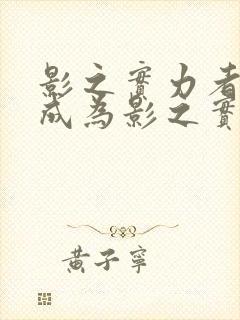 影之實力者
成為影之實
黃子寧